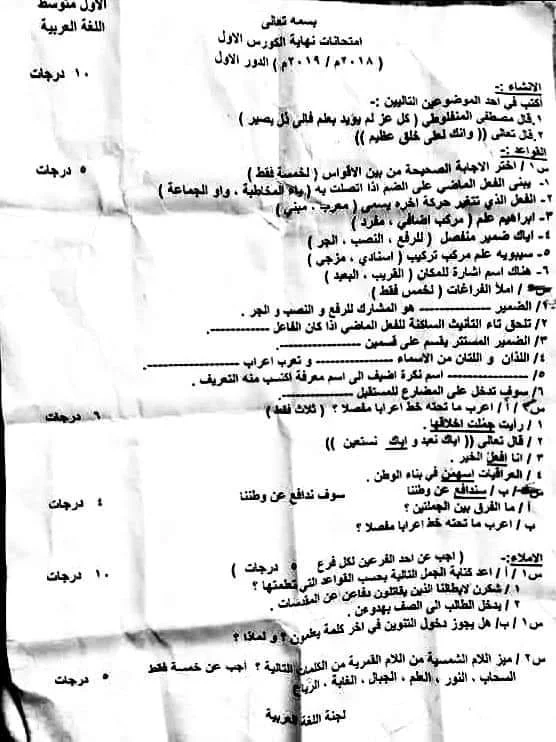 بسمه تعالى
الاول متوسط
امتحانات نهاية الكورس الاول
اللغة العربية
( ٢٠١٨م / ٢٠١٩م ) الدور الاول
الانشاء :-
١٠ درجات
أكتب في احد الموضوعين التاليين :-
١. قال مصطفى المنفلوطي ( كل عز لم يؤيد بعلم فالى ذل يصير )
٢. قال تعالى (( وانك لعلى خلق عظيم ))
القواعد :-
س١ / اختر الاجابة الصحيحة من بين الاقواس ( لخمسة فقط )
٥ درجات
١- يبنى الفعل الماضي على الضم اذا اتصلت به ( ياء المخاطبة ، واو الجماعة )
٢- الفعل الذي تتغير حركة اخره يسمى ( معرب ، مبني )
٣- ابراهيم علم ( مركب اضافي ، مفرد )
٤- اياك ضمير منفصل ( للرفع ، النصب ، الجر )
٥- سيبويه علم مركب تركيب ( اسنادي ، مزجي )
٦- هناك اسم اشارة للمكان ( القريب ، البعيد )
/ املأ الفراغات ( لخمس فقط )
١/ الضمير ---------- هو المشارك للرفع و النصب و الجر .
٢/ تلحق تاء التأنيث الساكنة للفعل الماضي اذا كان الفاعل ----------.
٣/ الضمير المستتر يقسم على قسمين ----------.
٤/ اللذان و اللتان من الأسماء ---------- و تعرب اعراب ----------.
٥/ ---------- اسم نكرة اضيف الى اسم معرفة اكتسب منه التعريف .
٦/ سوف تدخل على المضارع للمستقبل ----------.
س٢ / أ / اعرب ما تحته خط اعرابا مفصلا ؟ ( ثلاث فقط )
٦ درجات
١ / رأيت جملت اخلاقها .
٢ / قال تعالى (( اياك نعبد و اياك نستعين ))
٣ / انا افعل الخير .
٤ / العراقيات اسهمن في بناء الوطن .
/ ب / سندافع عن وطننا سوف ندافع عن وطننا
٤ درجات
أ / ما الفرق بين الجملتين ؟
ب / اعرب ما تحته خط اعرابا مفصلا ؟
الاملاء :- ( اجب عن احد الفرعين لكل فرع ٥ درجات )
١٠ درجات
س١ / أ / اعد كتابة الجمل التالية بحسب القواعد التي تعلمتها ؟
١ / شكرن لابطالنا الذين يقاتلون دفاعن عن المقدسات .
٢ / يدخل الطالب الى الصف بهدوءن .
س١ / ب/ هل يجوز دخول التنوين في اخر كلمة يعلمون ؟ و لماذا ؟
س٢ / ميز اللام الشمسية من اللام القمرية من الكلمات التالية ؟ أجب عن خمسة فقط
٥ درجات
السحاب ، النور ، العلم ، الجبال ، الغابة ، الرياح
لجنة اللغة العربية